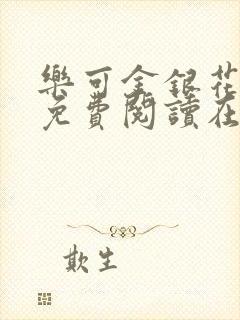 樂可金銀花
免費閱讀在
欺生